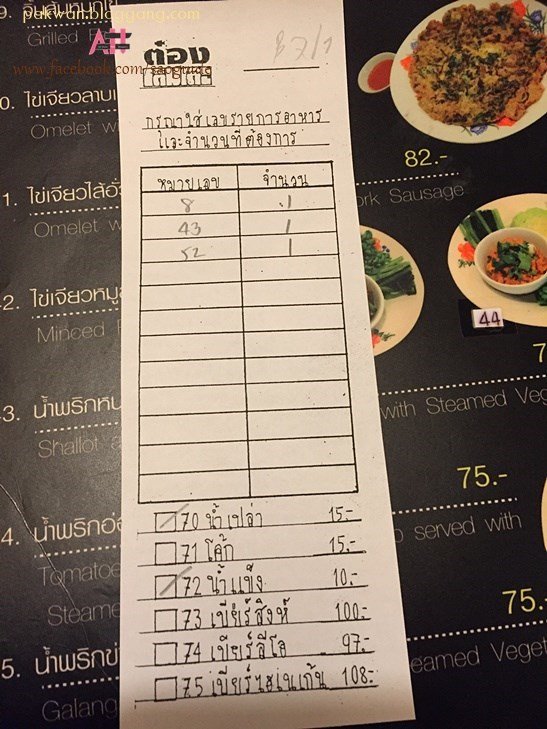 pukwan.bloggang.com
www.facebook.com/saoguide
ต๋อง
B7/1
กรุณาใช้เลขรายการอาหาร
และจำนวนที่ต้องการ
หมายเลข จำนวน
8 1
43 1
52 1
70 น้ำเปล่า 15.-
71 โค้ก 15.-
72 น้ำแข็ง 10.-
73 เบียร์สิงห์ 100.-
74 เบียร์ลีโอ 97.-
75 เบียร์ไฮเนเก้น 108.-
Grilled
0. ไข่เจียวลาบ
Omelet w
82.-
1. ไข่เจียวไส้อั่ว
Omelet w
ork Sausage
2. ไข่เจียวหมู
Minced
44
3. น้ำพริกหนุ่
Shallot a
with Steamed Veg
75.-
4. น้ำพริกอ่อ
Tomatoe
p served with
Steame
75.-
5. น้ำพริกข่า
Galang
eamed Veget